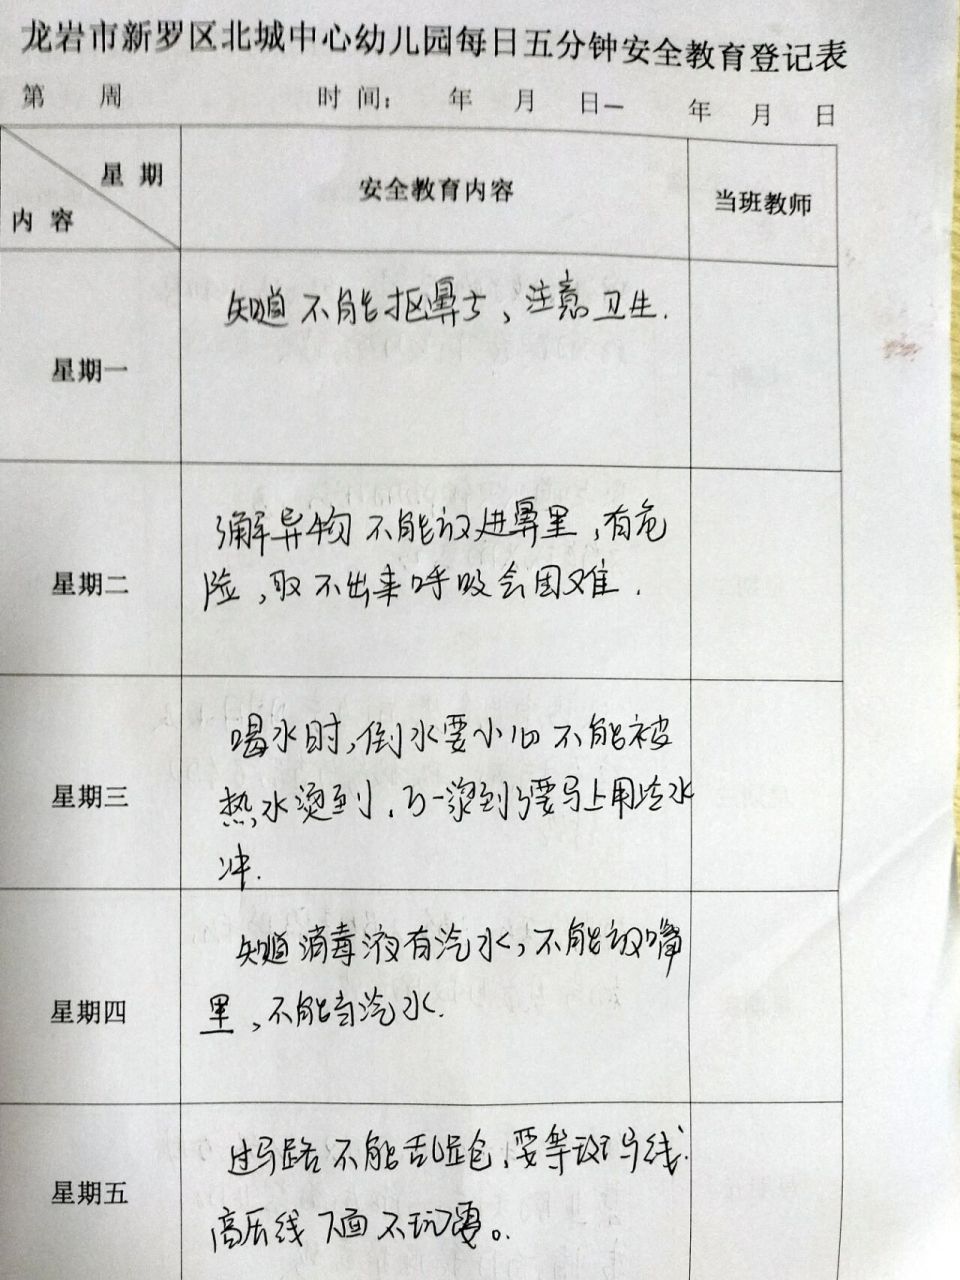 龙岩市新罗区北城中心幼儿园每日五分钟安全教育登记表
第 周 时间: 年 月 日— 年 月 日
星期 安全教育内容 当班教师
内容
知道不能抠鼻子,注意卫生.
星期一
了解异物不能放进鼻里,有危
星期二
险,取不出来呼吸会困难.
喝水时,倒水要小心不能被
星期三
热水烫到,万一烫到要马上用冷水
冲.
知道消毒液有汽水,不能放嘴
星期四
里,不能当汽水.
过马路不能乱跑,要等斑马线.
星期五
高压线下面不玩耍。